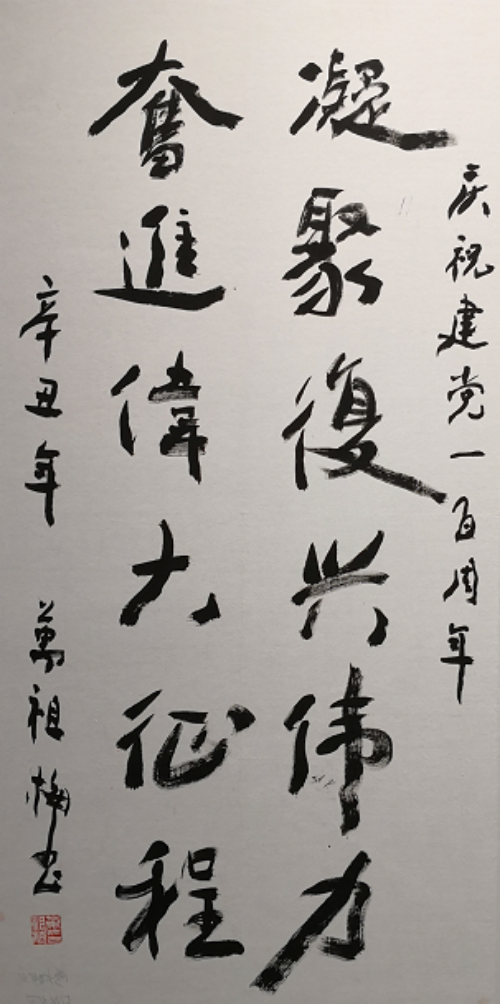 庆祝建党一百周年
凝聚復兴伟力
奮進偉大征程
辛丑年 萬祖梅书